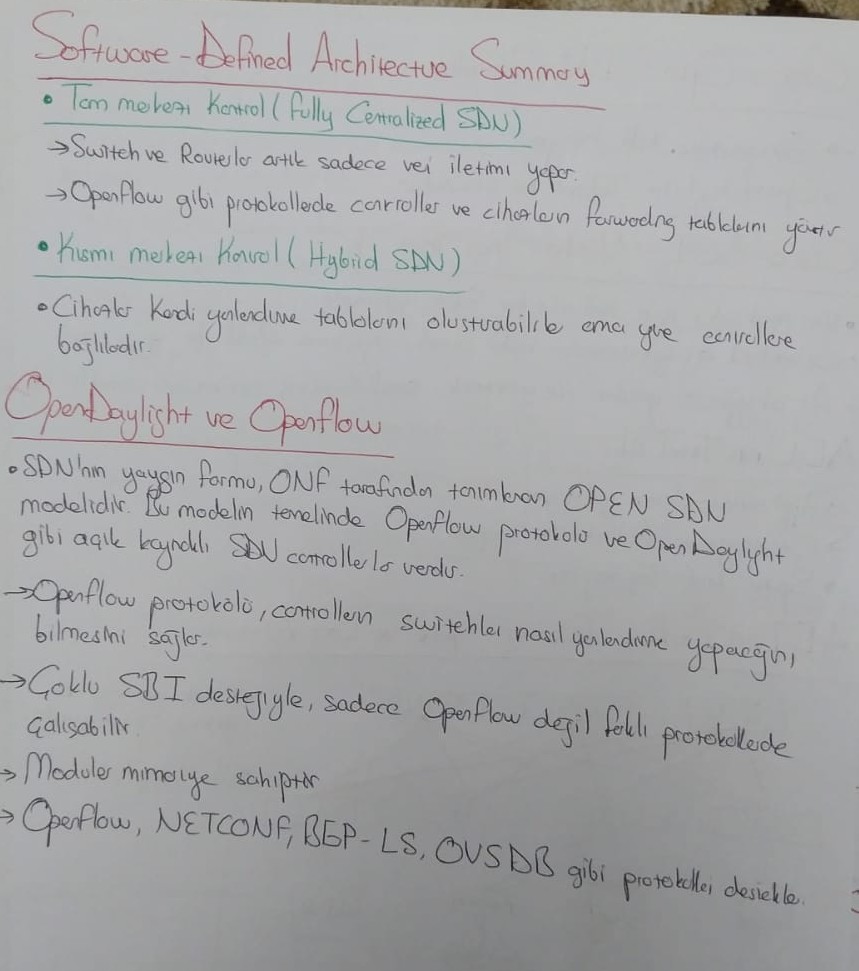 Software-Defined Architectue Summary
• Tam merkezi Kontrol (fully Centralized SDN)
→ Switch ve Routerlar artık sadece veri iletimi yapar.
→ Openflow gibi protokollerde controller ve cihazların forwarding tablolarını yönetir
• Kısmi merkezi Kontrol (Hybrid SDN)
• Cihazlar Kendi yönlendirme tablolarını oluşturabilirler ama yine controllere
bağlılardır.
OpenDaylight ve Openflow
• SDN'nin yaygın formu, ONF tarafından tanımlanan OPEN SDN
modelidir. Bu modelin temelinde Openflow protokolü ve OpenDaylight
gibi açık kaynaklı SDN controllerlar vardır.
→ Openflow protokolü, controllerın switchlere nasıl yönlendirme yapacağını
bilmesini sağlar.
→ Çoklu SBI desteğiyle, sadece Openflow değil farklı protokollerde
çalışabilir.
→ Moduler mimariye sahiptir
→ Openflow, NETCONF, BGP-LS, OVSDB gibi protokolleri destekler.